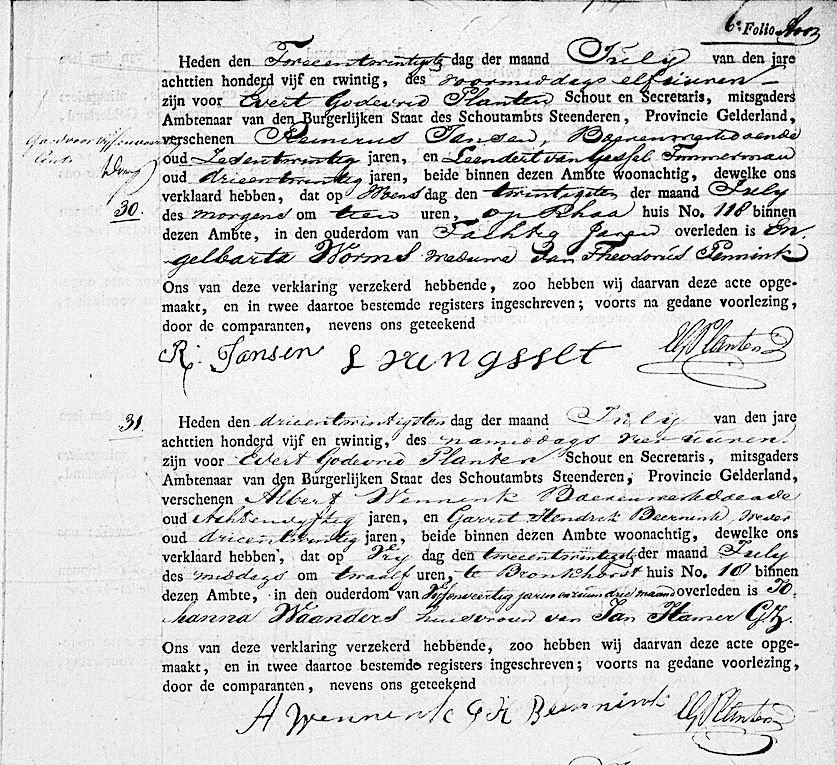 6e Folio
Heden den Tweeentwintigste dag der maand July van den jare
achttien honderd vijf en twintig, des voormiddags elf uuren
zijn voor Evert Godevrid Planten Schout en Secretaris, mitsgaders
Ambtenaar van den Burgerlijken Staat des Schoutambts Steenderen, Provincie Gelderland,
verschenen Reinerus Jansen, Boerenwerkdoende
oud Zesentwintig jaren, en Leendert van Gessel Timmerman
oud drieentwintig jaren, beide binnen dezen Ambte woonachtig, dewelke ons
verklaard hebben, dat op Woensdag den twintigsten der maand July
30.
des morgens om tien uren, op Rhaa huis No. 118 binnen
dezen Ambte, in den ouderdom van Tachtig Jaren overleden is En-
gelbarta Worms weduwe Jan Theodorus Pennink
Ons van deze verklaring verzekerd hebbende, zoo hebben wij daarvan deze acte opge-
maakt, en in twee daartoe bestemde registers ingeschreven; voorts na gedane voorlezing,
door de comparanten, nevens ons geteekend
R. Jansen L van gsselt EG Planten
31.
Heden den drieentwintigsten dag der maand July van den jare
achttien honderd vijf en twintig, des namiddags vier uuren
zijn voor Evert Godevrid Planten Schout en Secretaris, mitsgaders
Ambtenaar van den Burgerlijken Staat des Schoutambts Steenderen, Provincie Gelderland,
verschenen Albert Wennink Boerenwerkdoende
oud Achtenvyftig jaren, en Garrit Hendrik Beernink, wever
oud drieentwintig jaren, beide binnen dezen Ambte woonachtig, dewelke ons
verklaard hebben, dat op Vry dag den tweeentwintigste der maand July
des middags om twaalf uren, te Bronkhorst huis No. 18 binnen
dezen Ambte, in den ouderdom van Vyfenveertig jaren en ruim drie maand overleden is Jo-
hanna Waanders huisvrouw van Jan Hamer GZ.
Ons van deze verklaring verzekerd hebbende, zoo hebben wij daarvan deze acte opge-
maakt, en in twee daartoe bestemde registers ingeschreven; voorts na gedane voorlezing,
door de comparanten, nevens ons geteekend
A Wennink G H Beernink EG Planten